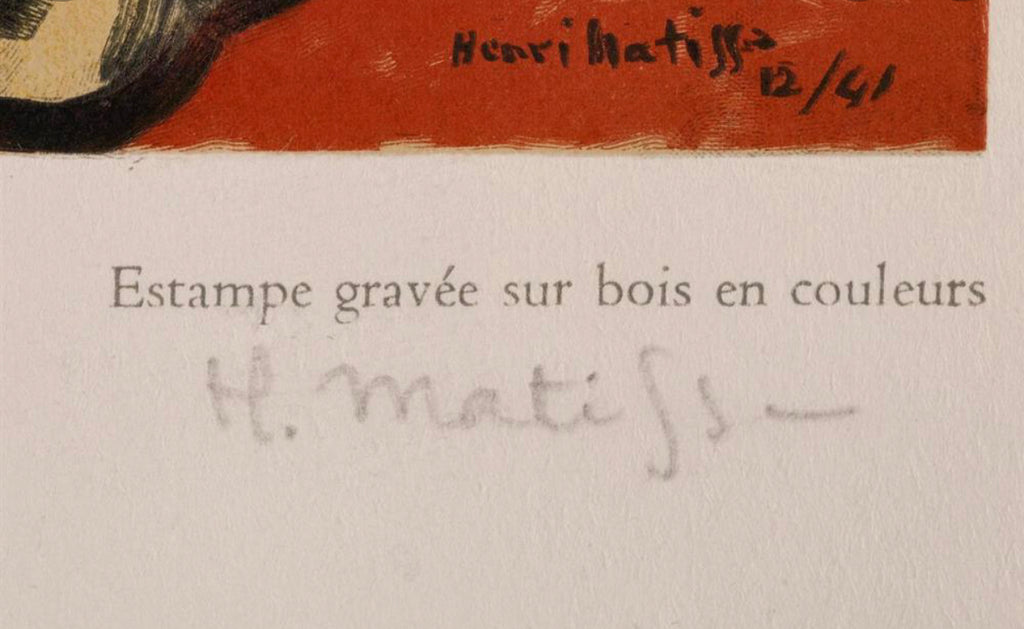 Henri Matisse
12/41
Estampe gravée sur bois en couleurs
H. Matisse